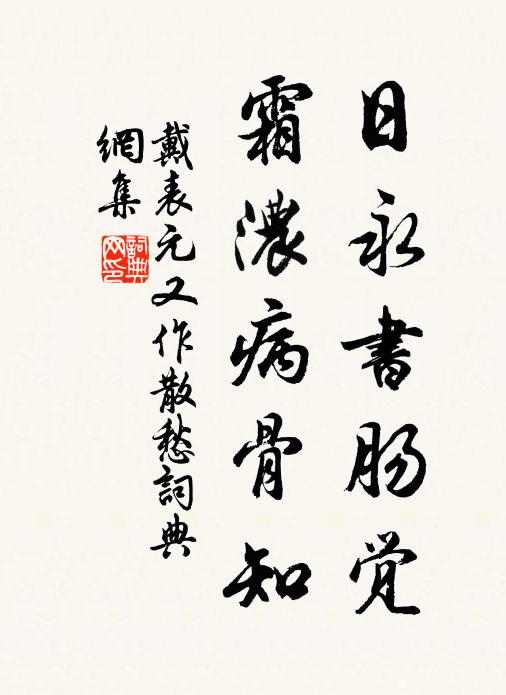 日永書肠觉
霜濃病骨知
戴表元又作散愁詞典
網集
詞典
网印